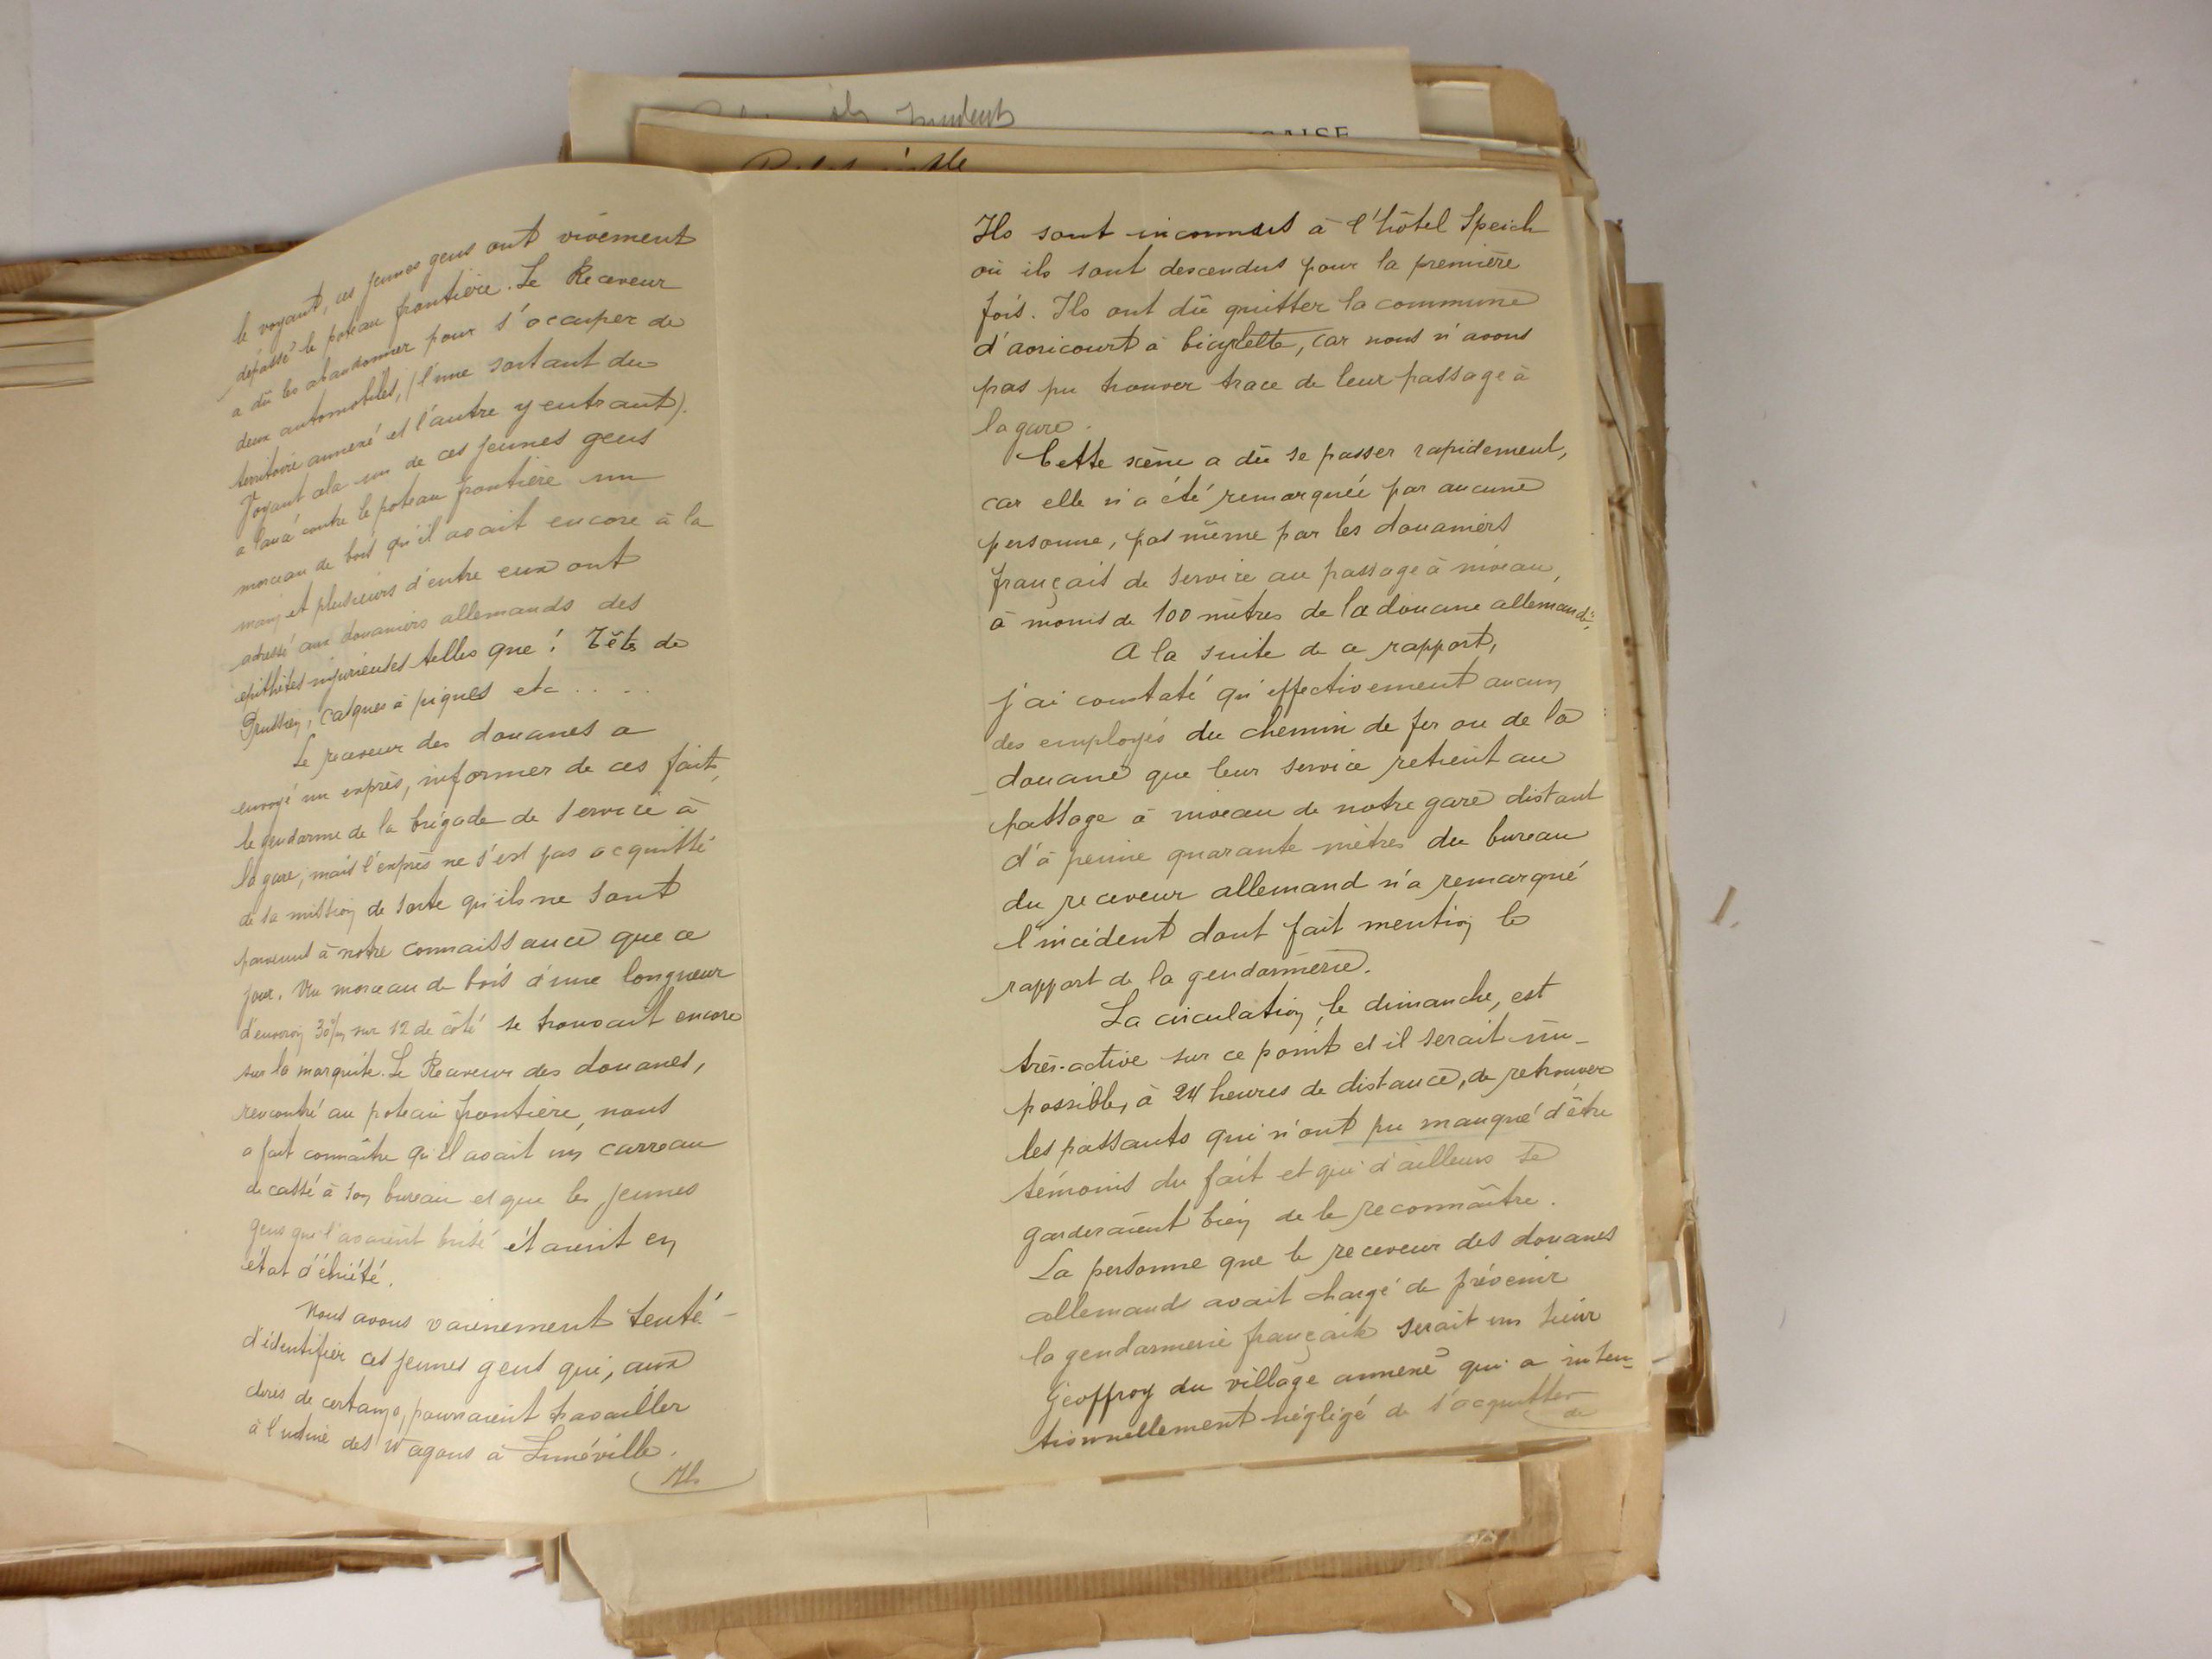 incidents
AISE
le voyant, ces jeunes gens ont vivement
dépassé le poteau frontière. Le Receveur
a dû les abandonner pour s'occuper de
deux automobiles, (l'une sortant du
territoire annexé et l'autre y entrant).
Voyant cela un de ces jeunes gens
a lancé contre le poteau frontière un
morceau de bois qu'il avait encore à la
main et plusieurs d'entre eux ont
adressé aux douaniers allemands des
épithètes injurieuses telles que : Têtes de
Prussien, Casques à piques etc....
Le receveur des douanes a
envoyé un exprès, informer de ces faits,
le gendarme de la brigade de service à
la gare; mais l'exprès ne s'est pas acquitté
de sa mission de sorte qu'ils ne sont
parvenus à notre connaissance que ce
jour. Un morceau de bois d'une longueur
d'environ 30 c/m sur 12 de côté se trouvait encore
sur la marquise. Le Receveur des douanes,
rencontré au poteau frontière, nous
a fait connaître qu'il avait un carreau
de cassé à son bureau et que les jeunes
gens qui l'avaient brisé étaient en
état d'ébriété.
Nous avons vainement tenté
d'identifier ces jeunes gens qui, aux
dires de certains, pourraient travailler
à l'usine des Wagons à Lunéville.
Ils
Ils sont inconnus à l'hôtel Speich
où ils sont descendus pour la première
fois. Ils ont dû quitter la commune
d'avricourt à bicyclette, car nous n'avons
pas pu trouver trace de leur passage à
la gare.
Cette scène a dû se passer rapidement,
car elle n'a été remarquée par aucune
personne, pas même par les douaniers
français de service au passage à niveau,
à moins de 100 mètres de la douane allemande.
A la suite de ce rapport,
j'ai constaté qu'effectivement aucun
des employés du chemin de fer ou de la
douane que leur service retient au
passage à niveau de notre gare distant
d'à peine quarante mètres du bureau
du receveur allemand n'a remarqué
l'incident dont fait mention le
rapport de la gendarmerie.
La circulation, le dimanche, est
très-active sur ce point et il serait im-
possible, à 24 heures de distance, de retrouver
les passants qui n'ont pu manqué d'être
témoins du fait et qui d'ailleurs se
garderaient bien de le reconnaître.
La personne que le receveur des douanes
allemands avait chargé de prévenir
la gendarmerie française serait un sieur
Geoffroy du village annexé qui a inten-
tionnellement négligé de s'acquitter
de